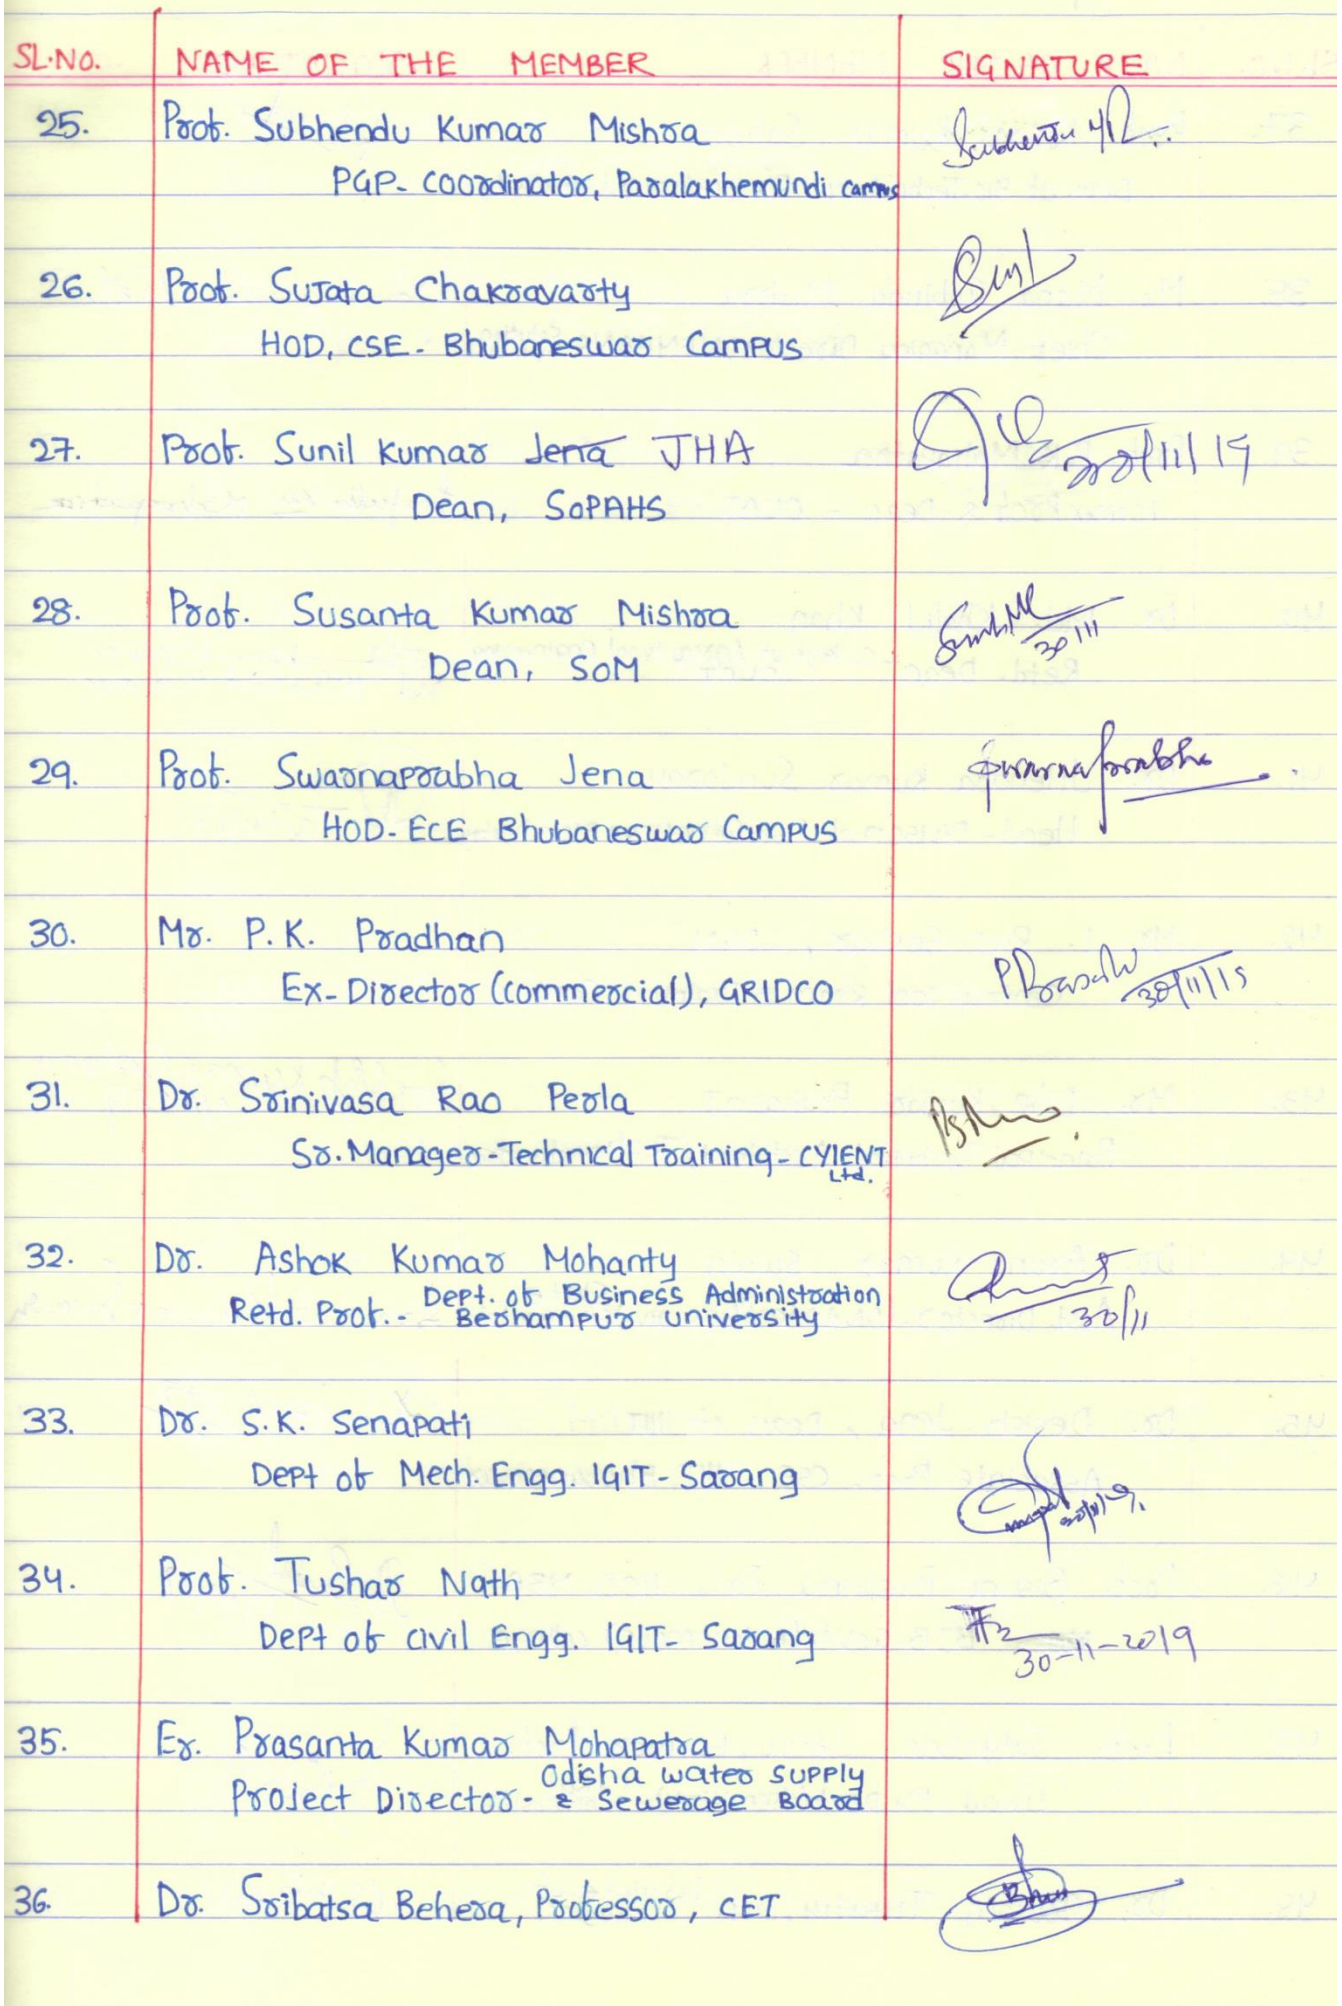 SL.NO. NAME OF THE MEMBER SIGNATURE
25. Prof. Subhendu Kumar Mishra
PGP- Coordinator, Paralakhemundi campus
26. Prof. Sujata Chakravarty
HOD, CSE- Bhubaneswar Campus
27. Prof. Sunil Kumar Jena JHA 30/11/19
Dean, SoPAHS
28. Prof. Susanta Kumar Mishra
30/11
Dean, SOM
29. Prof. Swarnaprabha Jena Swarnaprabha
HOD- ECE Bhubaneswar Campus
30. Mr. P.K. Pradhan
Ex- Director (commercial), GRIDCO 30/11/19
31. Dr. Srinivasa Rao Perla
Sr. Manager-Technical Training- CYIENT
Ltd.
32. Dr. Ashok Kumar Mohanty
Dept. of Business Administration
Retd. Prof. - Berhampur University 30/11
33. Dr. S.K. Senapati
Dept of Mech. Engg. IGIT- Sarang
34. Prof. Tushar Nath
Dept of civil Engg. IGIT- Sarang 30-11-2019
35. Er. Prasanta Kumar Mohapatra
Odisha water supply
Project Director- & Sewerage Board
36. Dr. Sribatsa Behera, Professor, CET